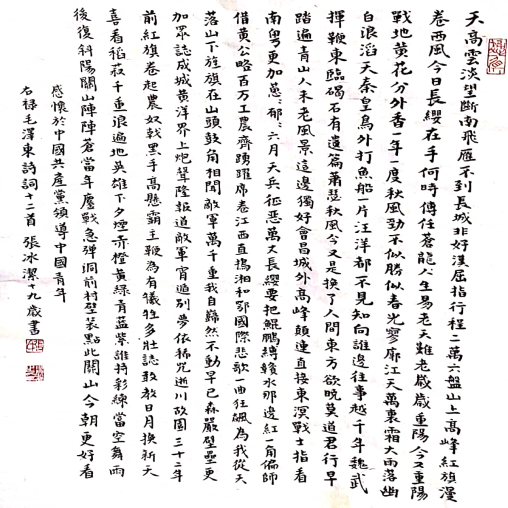 天高雲淡望斷南飛雁不到長城非好漢屈指行程二萬六盤山上高峰紅旗漫
卷西風今日長纓在手何時縛住蒼龍人生易老天難老歲歲重陽今又重陽
戰地黃花分外香一年一度秋風勁不似勝似春光寥廓江天萬裏霜大雨落幽
白浪滔天秦皇島外打魚船一片汪洋都不見知向誰邊往事越千年魏武
揮鞭東臨碣石有遺篇蕭瑟秋風今又是換了人間東方欲曉莫道君行早
踏遍青山人未老風景這邊獨好會昌城外高峰顛連直接東溟戰士指看
南粵更加蔥〻郁〻六月天兵征惡萬丈長纓要把鯤鵬縛贛水那邊紅一角偏師
借黃公略百万工農齊踴躍席卷江西直搗湘和鄂國際悲歌一曲狂飆為我從天
落山下旌旗在山頭鼓角相聞敵軍萬千重我自巋然不動早已森嚴壁壘更
加眾誌成城黃洋界上炮聲隆報道敵軍宵遁別夢依稀咒逝川故園三十二年
前紅旗卷起農奴戟黑手高懸霸主鞭為有犧牲多壯誌敢教日月換新天
喜看稻菽千重浪遍地英雄下夕煙赤橙黃綠青藍紫誰持彩練當空舞雨
後復斜陽關山陣陣蒼當年鏖戰急彈洞前村壁裝點此關山今朝更好看
感懷於中國共產黨領導中國青年
右祿毛澤東詩詞十二首 張冰潔十九歲書